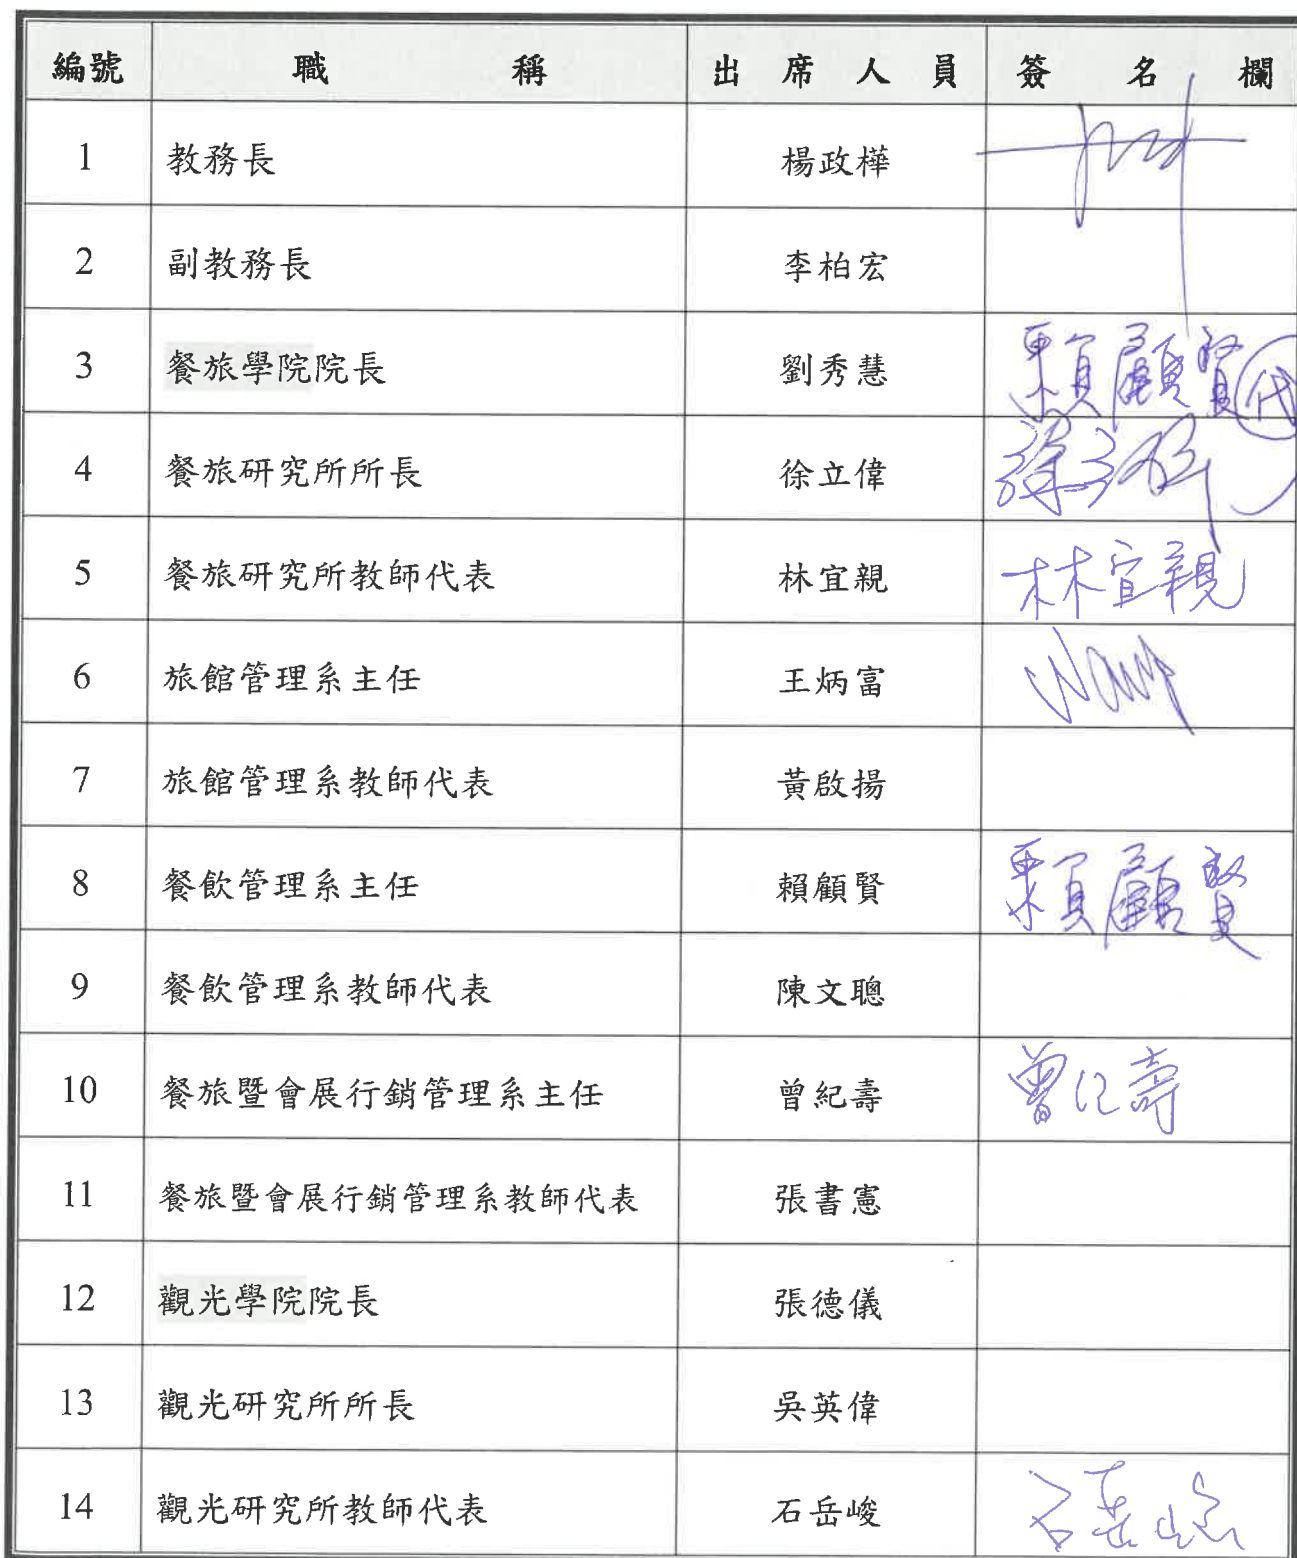 編號 職稱 出席人員 簽名欄
1 教務長 楊政樺
2 副教務長 李柏宏
3 餐旅學院院長 劉秀慧 賴顧賢 代
4 餐旅研究所所長 徐立偉
5 餐旅研究所教師代表 林宜親 林宜親
6 旅館管理系主任 王炳富 Wang
7 旅館管理系教師代表 黃啟揚
8 餐飲管理系主任 賴顧賢 賴顧賢
9 餐飲管理系教師代表 陳文聰
10 餐旅暨會展行銷管理系主任 曾紀壽 曾紀壽
11 餐旅暨會展行銷管理系教師代表 張書憲
12 觀光學院院長 張德儀
13 觀光研究所所長 吳英偉
14 觀光研究所教師代表 石岳峻 石岳峻